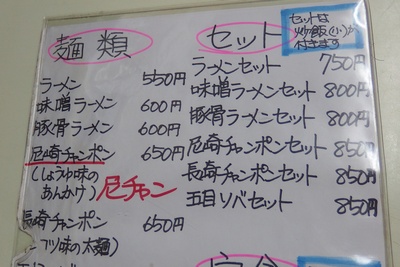 麺類
ラーメン 550円
味噌ラーメン 600円
豚骨ラーメン 600円
尼崎チャンポン 650円
(しょうゆ味の
あんかけ)
尼チャン
長崎チャンポン 650円
味の太麺)
セット
セットは
炒飯(小)が
付きます
ラーメンセット 750円
味噌ラーメンセット 800円
豚骨ラーメンセット 800円
尼崎チャンポンセット 850円
長崎チャンポンセット 850円
五目ソバセット 850円